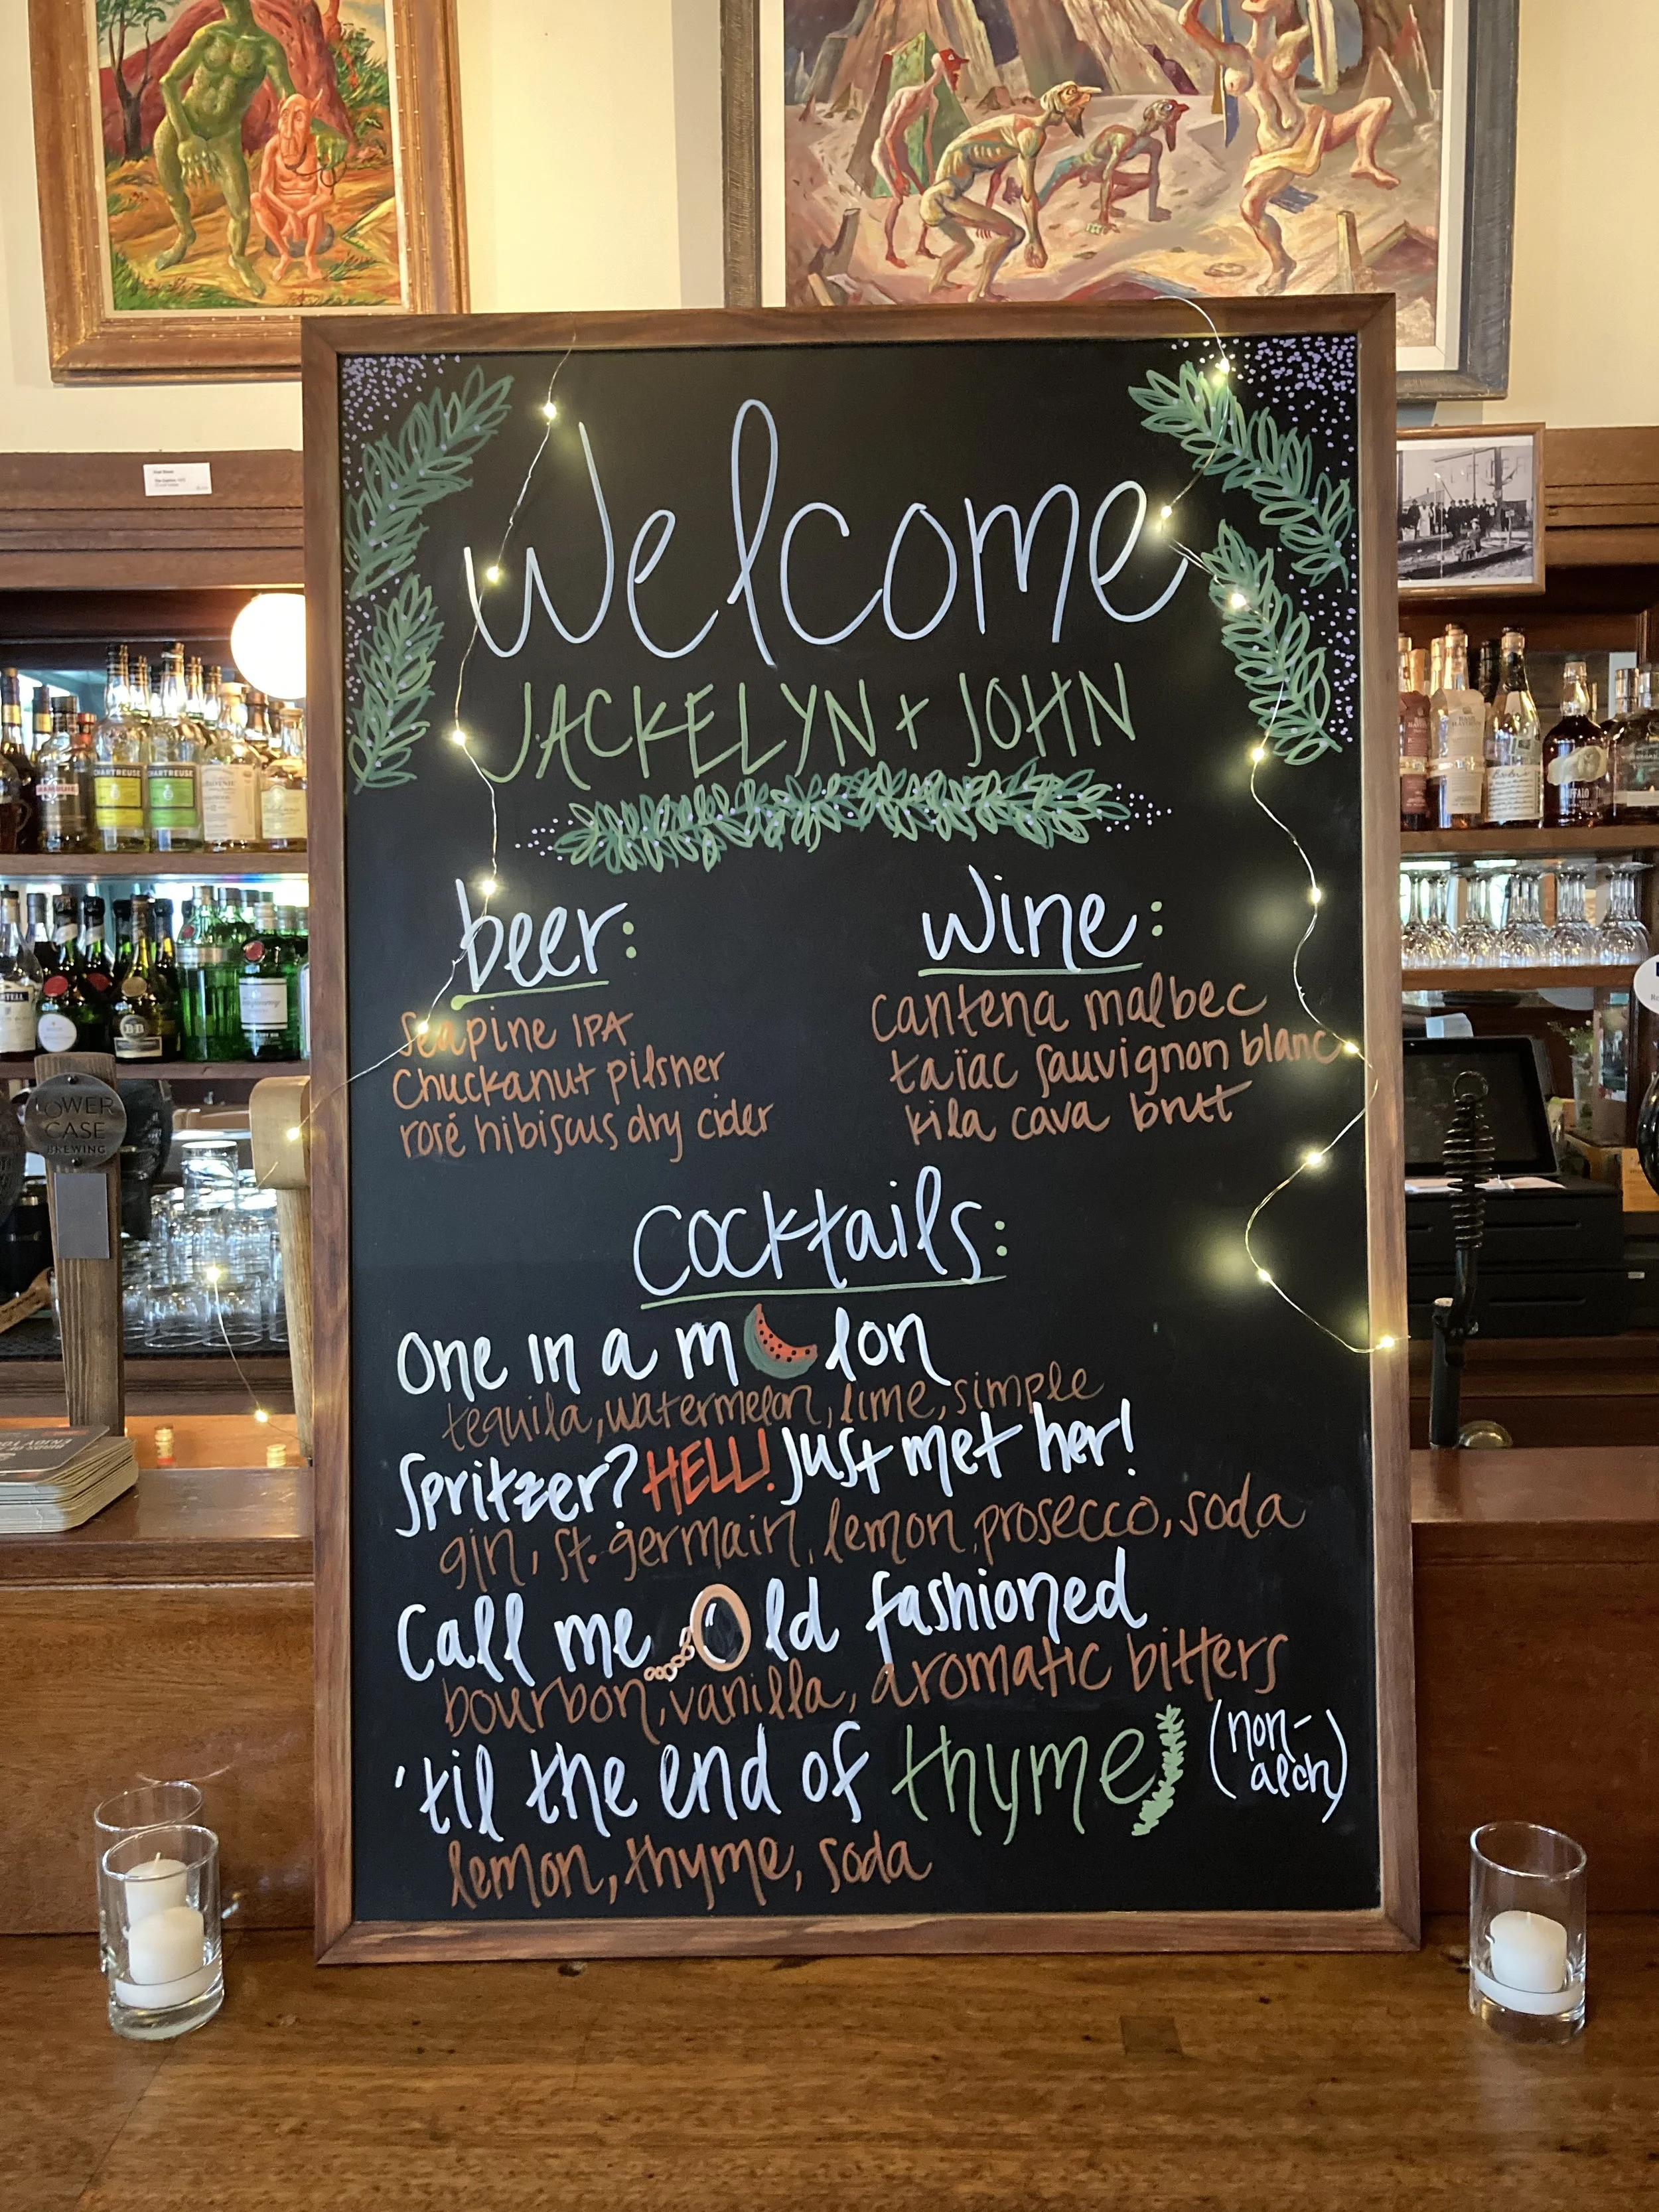 Welcome
JACKELYN + JOHN
beer:
Seapine IPA
Chuckanut pilsner
rosé hibiscus dry cider
wine:
cantena malbec
taïac sauvignon blanc
kila cava brut
Cocktails:
One in a m lon
tequila, watermelon, lime, simple
Spritzer? HELL! Just met her!
gin, st. germain, lemon, prosecco, soda
Call me Old fashioned
bourbon, vanilla, aromatic bitters
'til the end of thyme (non-
alch)
lemon, thyme, soda
CHARTREUSE
CHARTREUSE
B&B
LOWER
CASE
BREWING